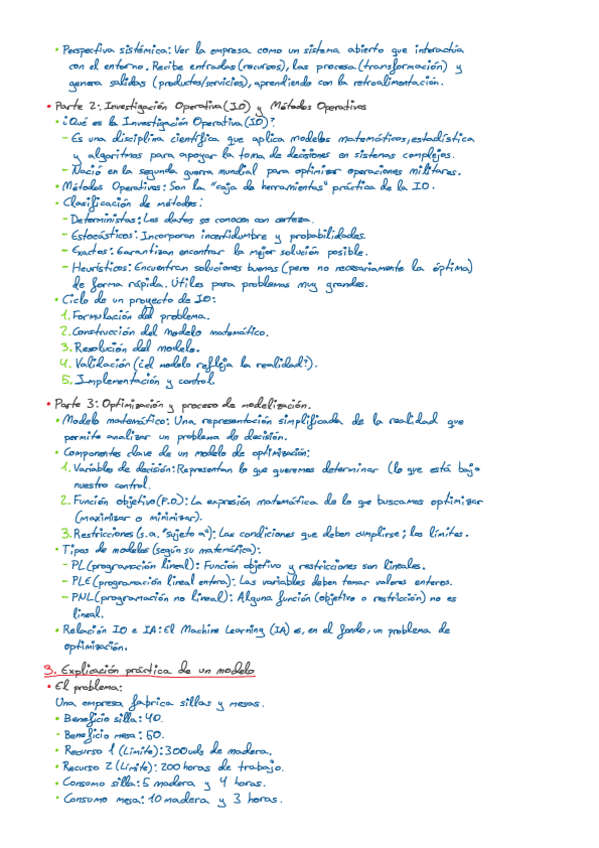 • Perspectiva sistémica: Ver la empresa como un sistema abierto que interactúa
con el entorno. Recibe entradas (recursos), las procesa (transformación) y
genera salidas (productos/servicios), aprendiendo con la retroalimentación.
• Parte 2: Investigación Operativa (IO) y Métodos Operativos
• ¿Qué es la Investigación Operativa (IO)?
- Es una disciplina científica que aplica modelos matemáticos, estadística
y algoritmos para apoyar la toma de decisiones en sistemas complejos.
- Nació en la segunda guerra mundial para optimizar operaciones militares.
• Métodos Operativos: Son la "caja de herramientas" práctica de la IO.
• Clasificación de métodos:
- Deterministas: Los datos se conocen con certeza.
- Estocásticos: Incorporan incertidumbre y probabilidades.
- Exactos: Garantizan encontrar la mejor solución posible.
- Heurísticos: Encuentran soluciones buenas (pero no necesariamente la óptima)
de forma rápida. Útiles para problemas muy grandes.
• Ciclo de un proyecto de IO:
1. Formulación del problema.
2. Construcción del modelo matemático.
3. Resolución del modelo.
4. Validación (¿el modelo refleja la realidad?).
5. Implementación y control.
• Parte 3: Optimización y proceso de modelización.
• Modelo matemático: Una representación simplificada de la realidad que
permite analizar un problema de decisión.
• Componentes clave de un modelo de optimización:
1. Variables de decisión: Representan lo que queremos determinar (lo que está bajo
nuestro control.
2. Función objetivo (F.O): La expresión matemática de lo que buscamos optimizar
(maximizar o minimizar).
3. Restricciones (s.a. "sujeto a"): Las condiciones que deben cumplirse; los límites.
• Tipos de modelos (según su matemática):
- PL (programación lineal): Función objetivo y restricciones son lineales.
- PLE (programación lineal entera): Las variables deben tomar valores enteros.
- PNL (programación no lineal): Alguna función (objetivo o restricción) no es
lineal.
• Relación IO e IA: El Machine Learning (IA) es, en el fondo, un problema de
optimización.
3. Explicación práctica de un modelo
• El problema:
Una empresa fabrica sillas y mesas.
• Beneficio silla: 40.
• Beneficio mesa: 50.
• Recurso 1 (Límite): 300 uds de madera.
• Recurso 2 (Límite): 200 horas de trabajo.
• Consumo silla: 5 madera y 4 horas.
• Consumo mesa: 10 madera y 3 horas.